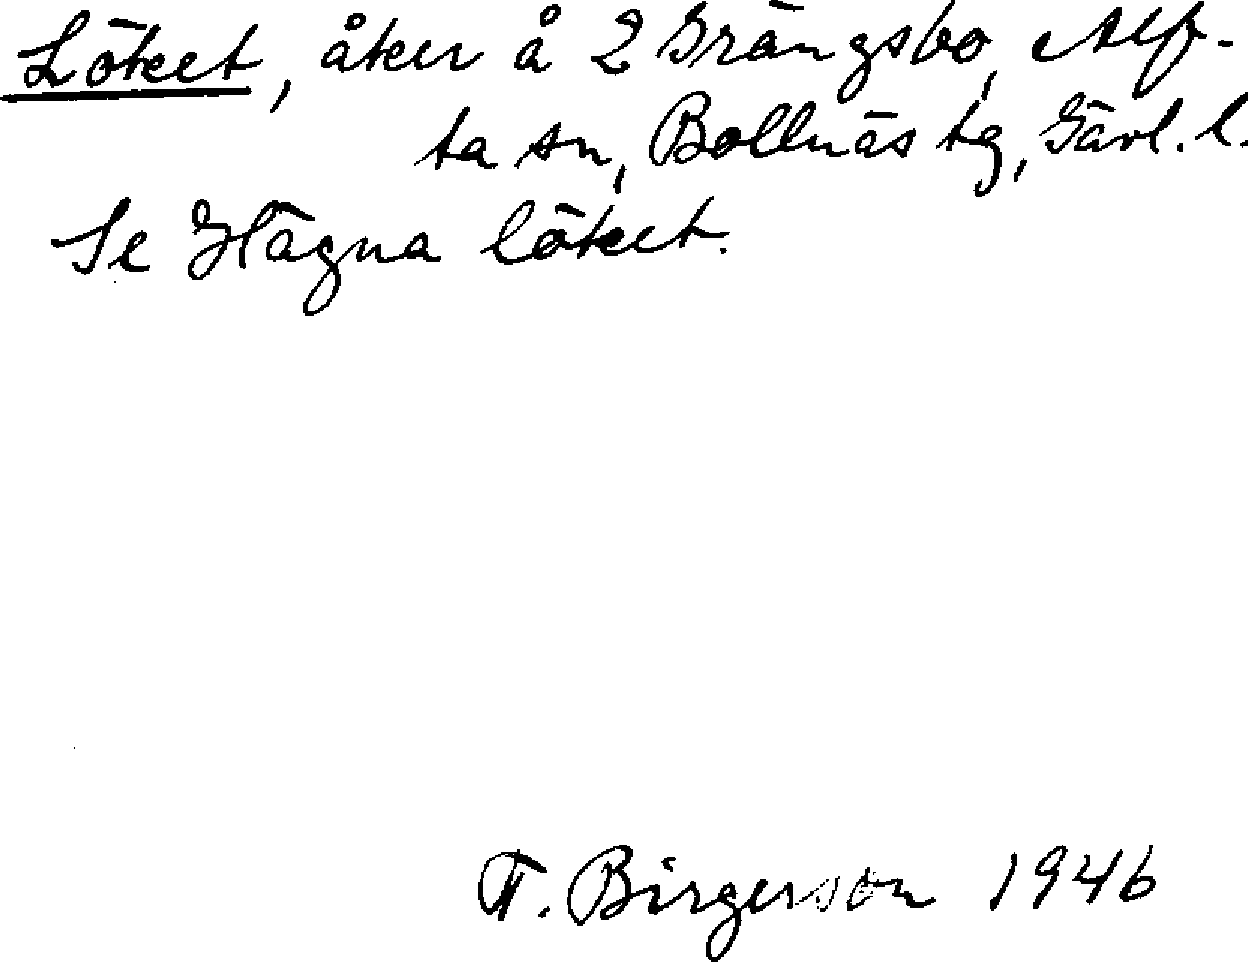 Löket, åker å 2 Grängsbo, Alf-
ta sn, Bollnäs tg, Gävl. l.
Se Hägna löket.
T. Birgerson 1946